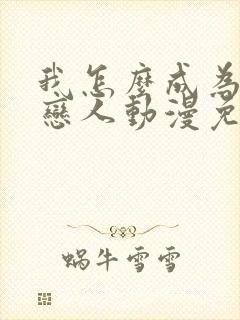 我怎麼成為
戀人動漫免
蝸牛雪雪